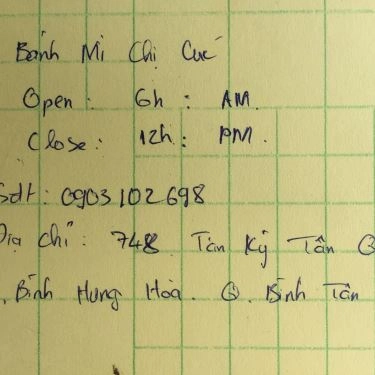 Bánh Mì Chị Cúc
Open : 6h : AM.
Close : 12h : PM.
Sdt : 0903 102 698
Địa chỉ : 748 Tân Kỳ Tân Q
. Bình Hưng Hòa. Q. Bình Tân